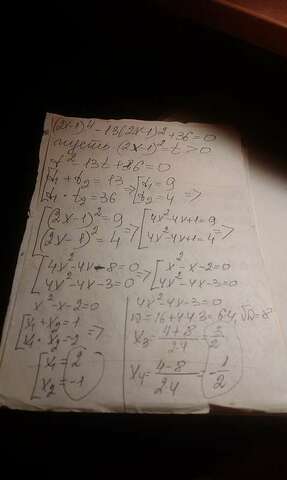 (2x-1)^4 - 13(2x-1)^2 + 36 = 0
пусть (2x-1)^2 = t > 0
t^2 - 13t + 36 = 0
[t1 + t2 = 13 => [t1 = 9
[t1 · t2 = 36 [t2 = 4 =>
[(2x-1)^2 = 9 => [4x^2-4x+1=9
[(2x-1)^2 = 4 [4x^2-4x+1=4 =>
[4x^2-4x-8=0 => [x^2-x-2=0
[4x^2-4x-3=0 [4x^2-4x-3=0
x^2-x-2=0
[x1+x2=1 =>
[x1·x2=-2
[x1=2
[x2=-1
4x^2-4x-3=0
D=16+4·4·3=64, √D=8
x3 = (4+8)/(2·4) = 3/2
x4 = (4-8)/(2·4) = -1/2